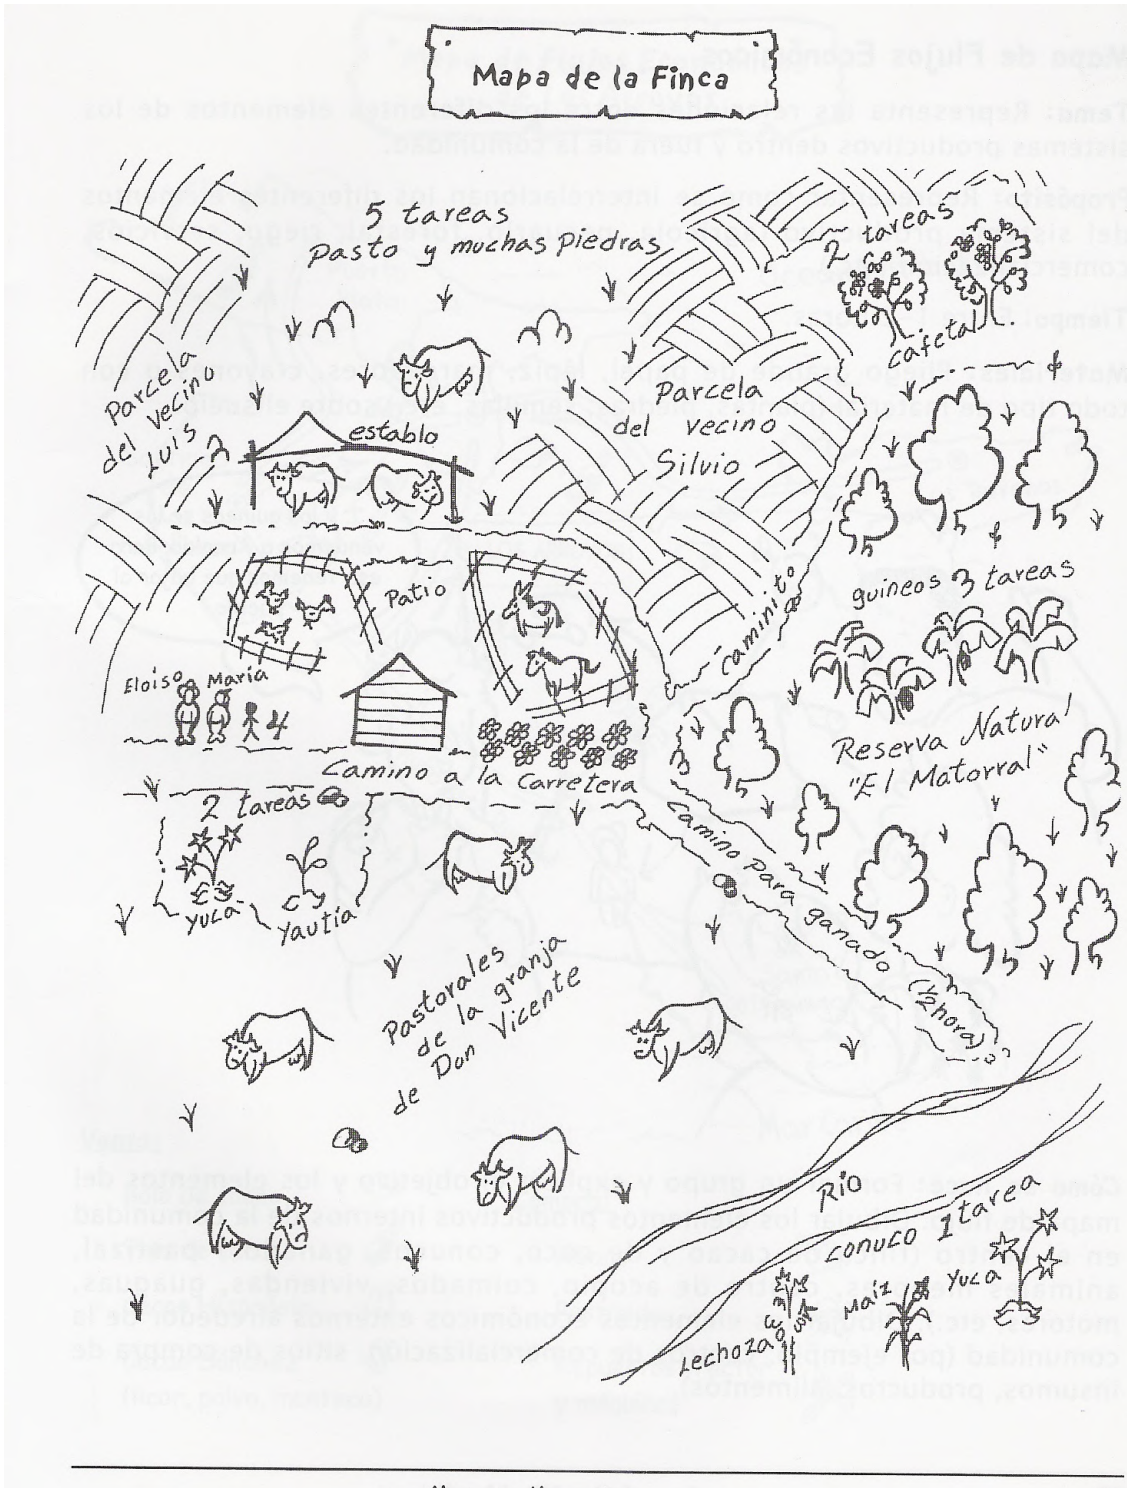 Mapa de la Finca
5 tareas
Pasto y muchas piedras
2 tareas
cafetal
Parcela
del vecino
Luis
establo
Parcela
del vecino
Silvio
Patio
caminito
guineos 3 tareas
Eloiso María
4
Reserva Natural
"El Matorral"
Camino a la carretera
2 tareas
yuca
yautía
Camino para ganado (1/2 hora)
Pastorales
de la granja
de Don Vicente
Río
conuco 1 tarea
Lechoza
Maíz
yuca